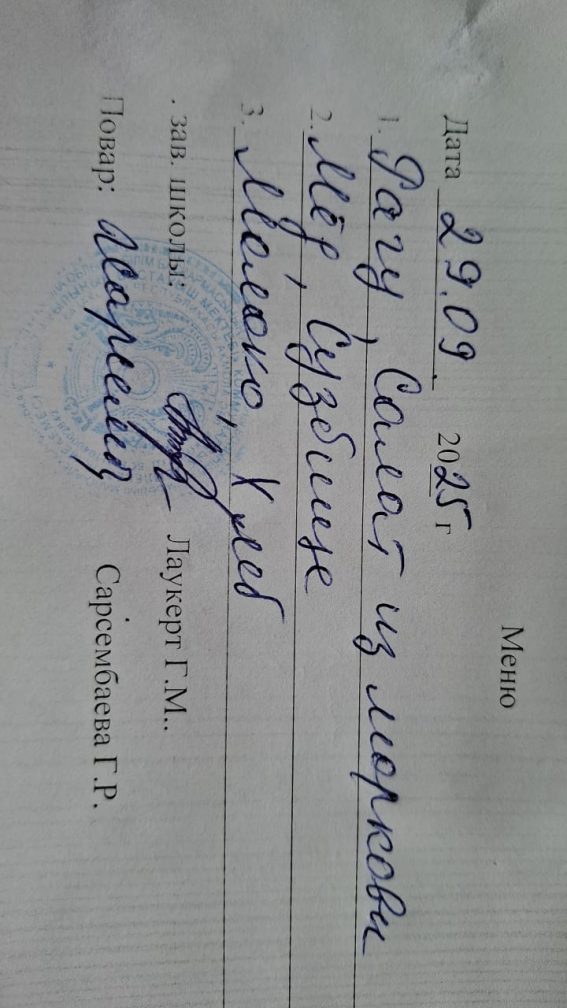 Меню
Дата 29.09. 2025 г
1. Рагу, Салат из моркови
2. Мёд, Сузбише
3. Молоко, Хлеб
. зав. школы: Лаукерт Г.М..
Повар: Сарсембаева Г.Р.